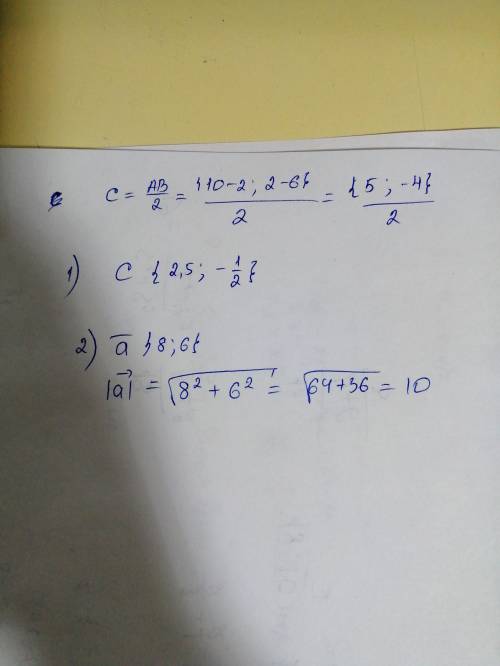 C = AB/2 = {10-2; 2-6}/2 = {5; -4}/2
1) C {2,5; -1/2}
2) a̅ {8;6}
|a⃗| = √(8² + 6²) = √(64+36) = 10